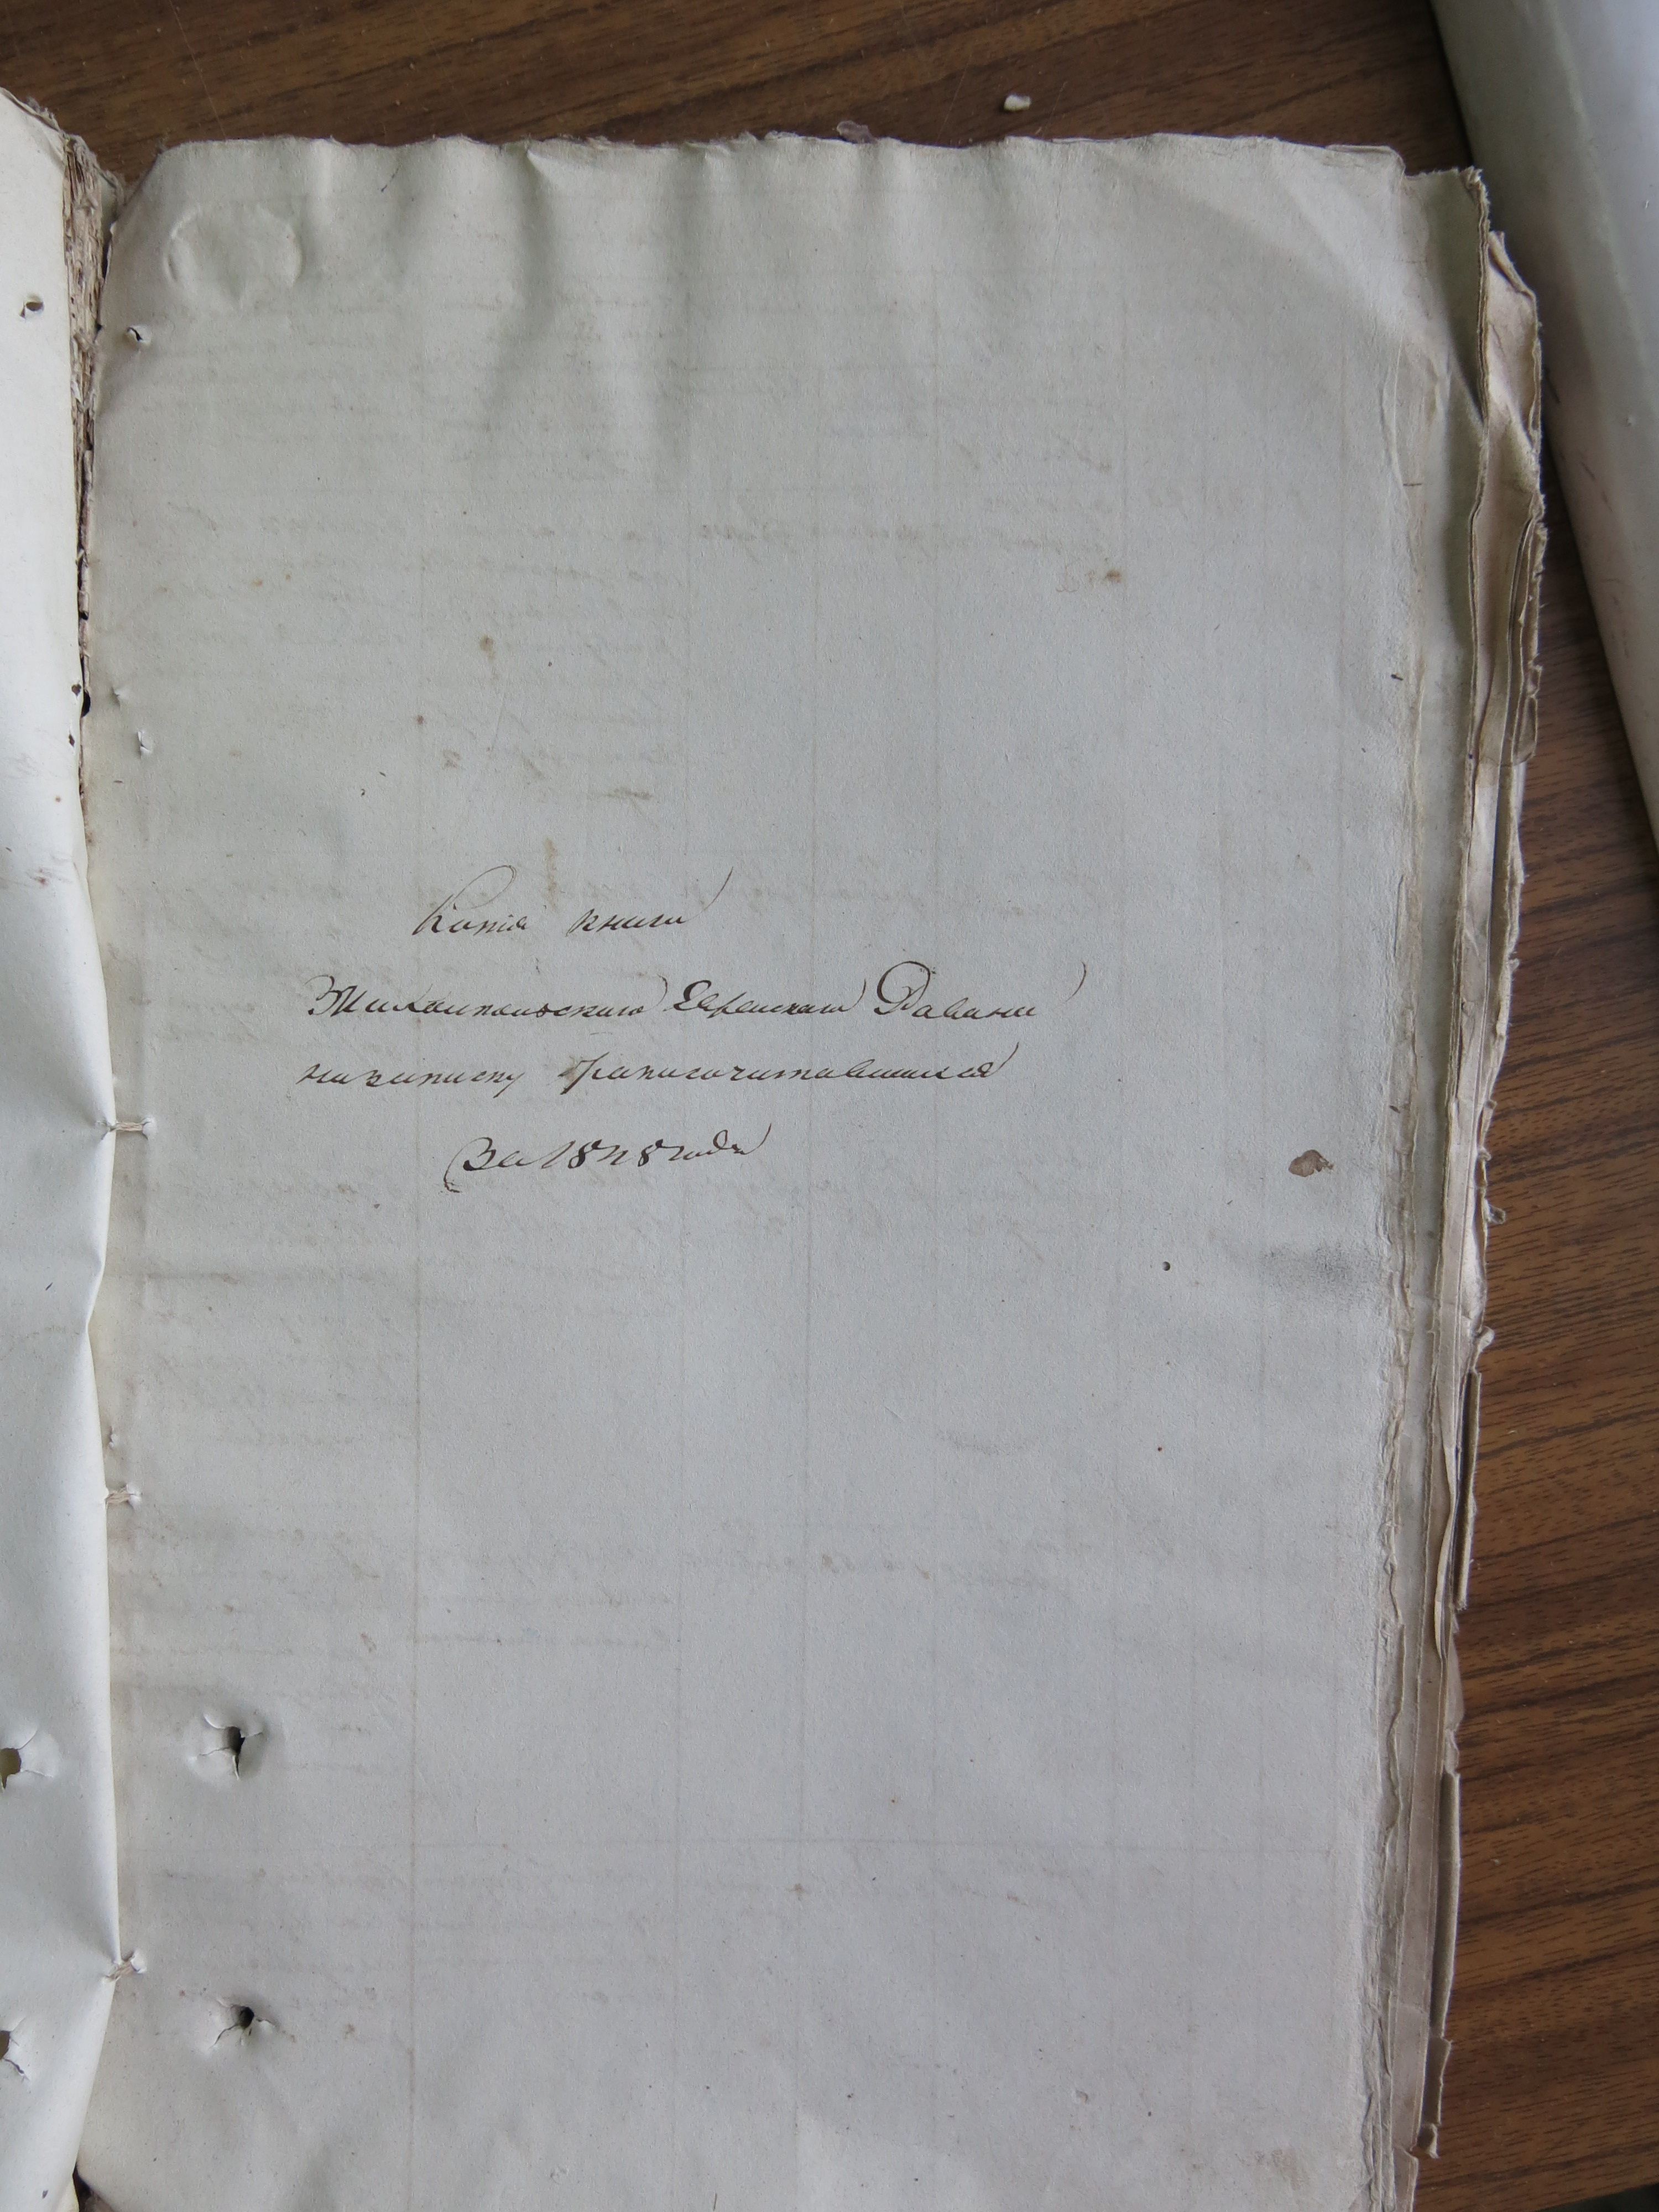 Копія книги
Михалпольскаго Еврейскаго Равина
на записку бракосочетавшихся
За 1848 годъ